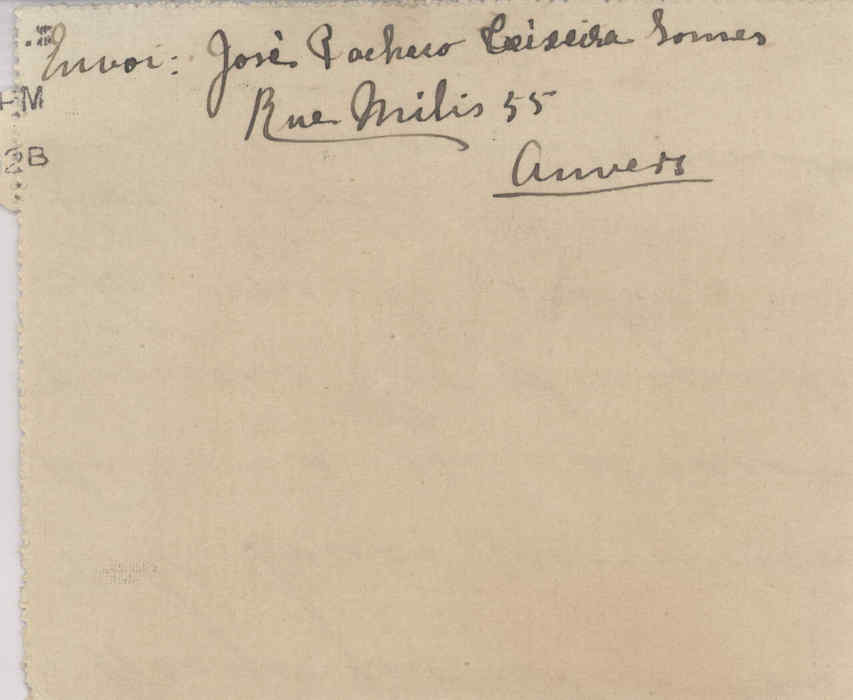 Envoi: José Pacheco Teixeira Gomes
M
Rue Milis 55
2B
Anvers